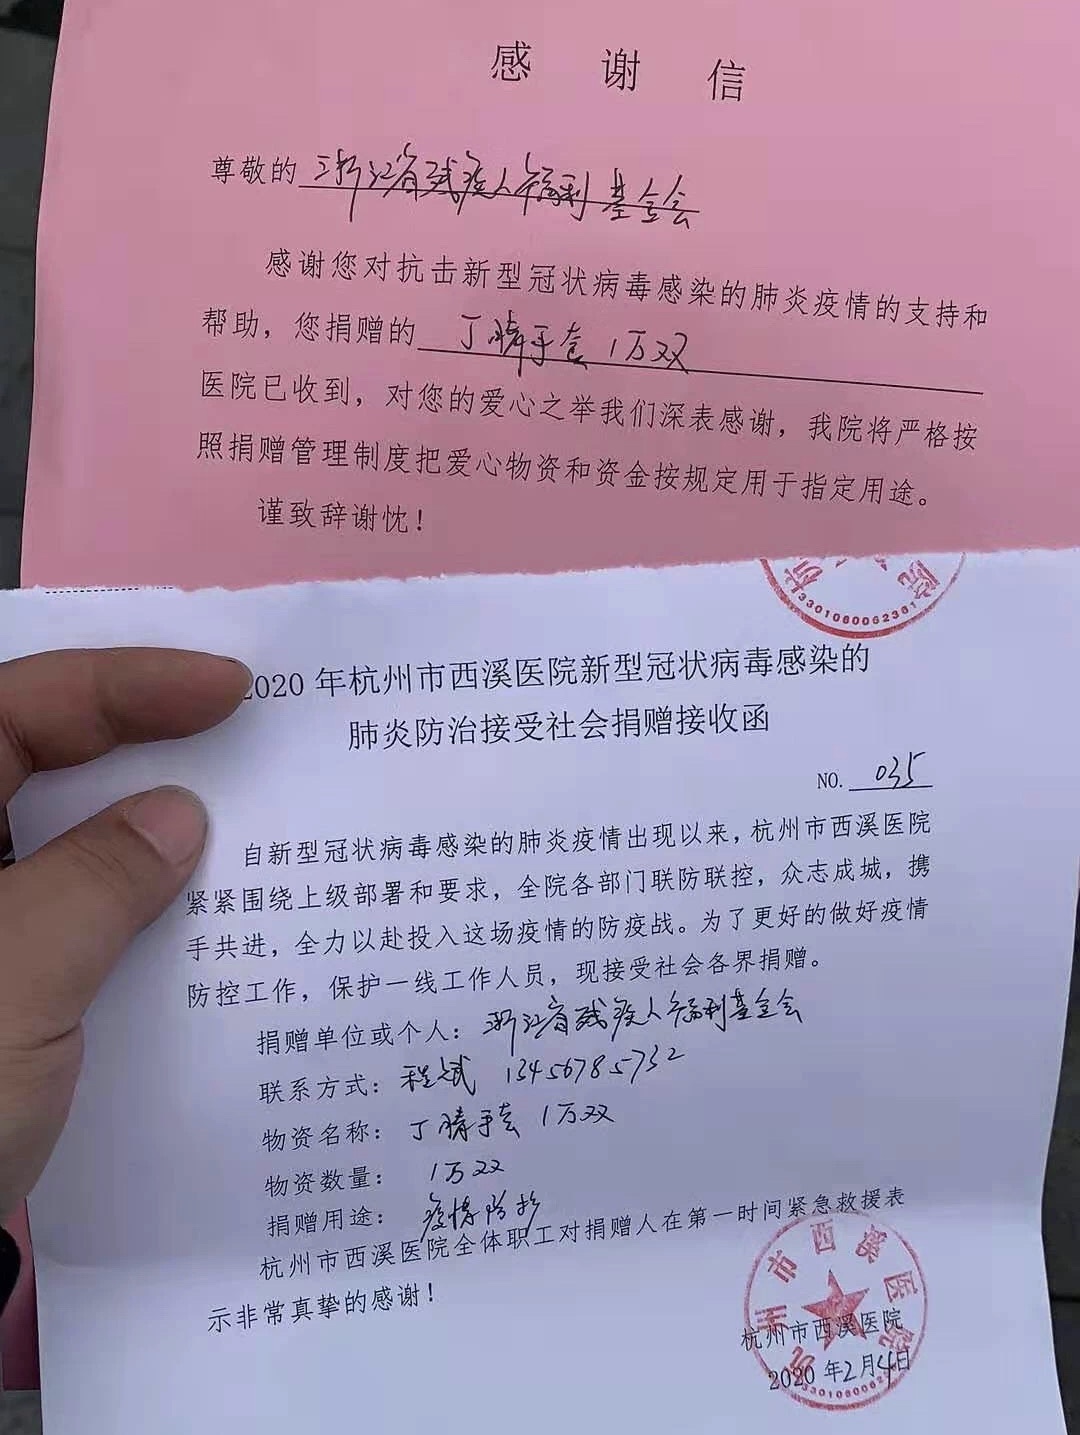 感谢信
尊敬的 浙江省残疾人福利基金会
感谢您对抗击新型冠状病毒感染的肺炎疫情的支持和
帮助，您捐赠的 丁腈手套 1万双
医院已收到，对您的爱心之举我们深表感谢，我院将严格按
照捐赠管理制度把爱心物资和资金按规定用于指定用途。
谨致辞谢忱！
杭 院
3301060062361
2020 年杭州市西溪医院新型冠状病毒感染的
肺炎防治接受社会捐赠接收函
NO. 035
自新型冠状病毒感染的肺炎疫情出现以来，杭州市西溪医院
紧紧围绕上级部署和要求，全院各部门联防联控，众志成城，携
手共进，全力以赴投入这场疫情的防疫战。为了更好的做好疫情
防控工作，保护一线工作人员，现接受社会各界捐赠。
捐赠单位或个人：浙江省残疾人福利基金会
联系方式：程斌 13456785732
物资名称：丁腈手套 1万双
物资数量：1万双
捐赠用途：疫情防护
杭州市西溪医院全体职工对捐赠人在第一时间紧急救援表
示非常真挚的感谢！
杭州市西溪医院
杭州市西溪医院
2020 年2月4日